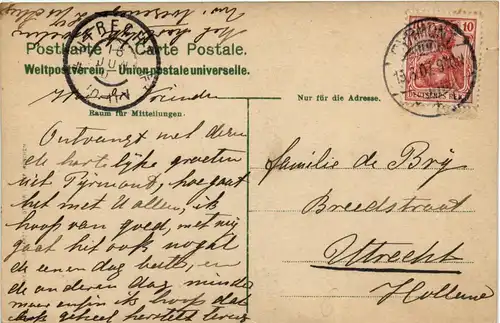 Postkarte – Carte Postale.
Weltpostverein – Union postale universelle.
Raum für Mitteilungen.
Nur für die Adresse.
Vrienden
Ontvangt met dezen
de hartelijke groeten
uit Pyrmont, hoe gaat
het met U allen, ik
hoop van goed, met mij
gaat het ook nogal
de eenen dag beter, en
de anderen dag minder
maar enfin ik hoop dat
ik geheel herstelt terug
familie de Bry
Breedstraat
Uttrecht
Holland
10